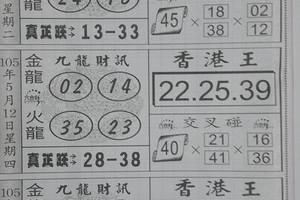 星期二
真正跌→13-33
45 18×02
38 12
105年5月12日星期四
金龍 九龍財訊
02 14
火龍
35 23
真正跌→28-38
香港王
22.25.39
交叉碰
40 21×16
41 36
105
金 九龍財訊
香港王